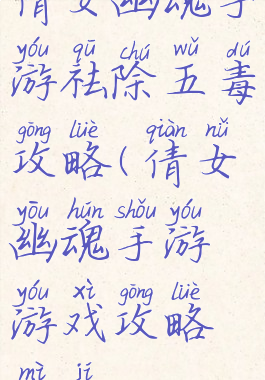 倩女幽魂手
yóu qū chú wǔ dú
游祛除五毒
gōng lüè qiàn nǚ
攻略(倩女
yōu hún shǒu yóu
幽魂手游
yóu xì gōng lüè
游戏攻略
mì jí